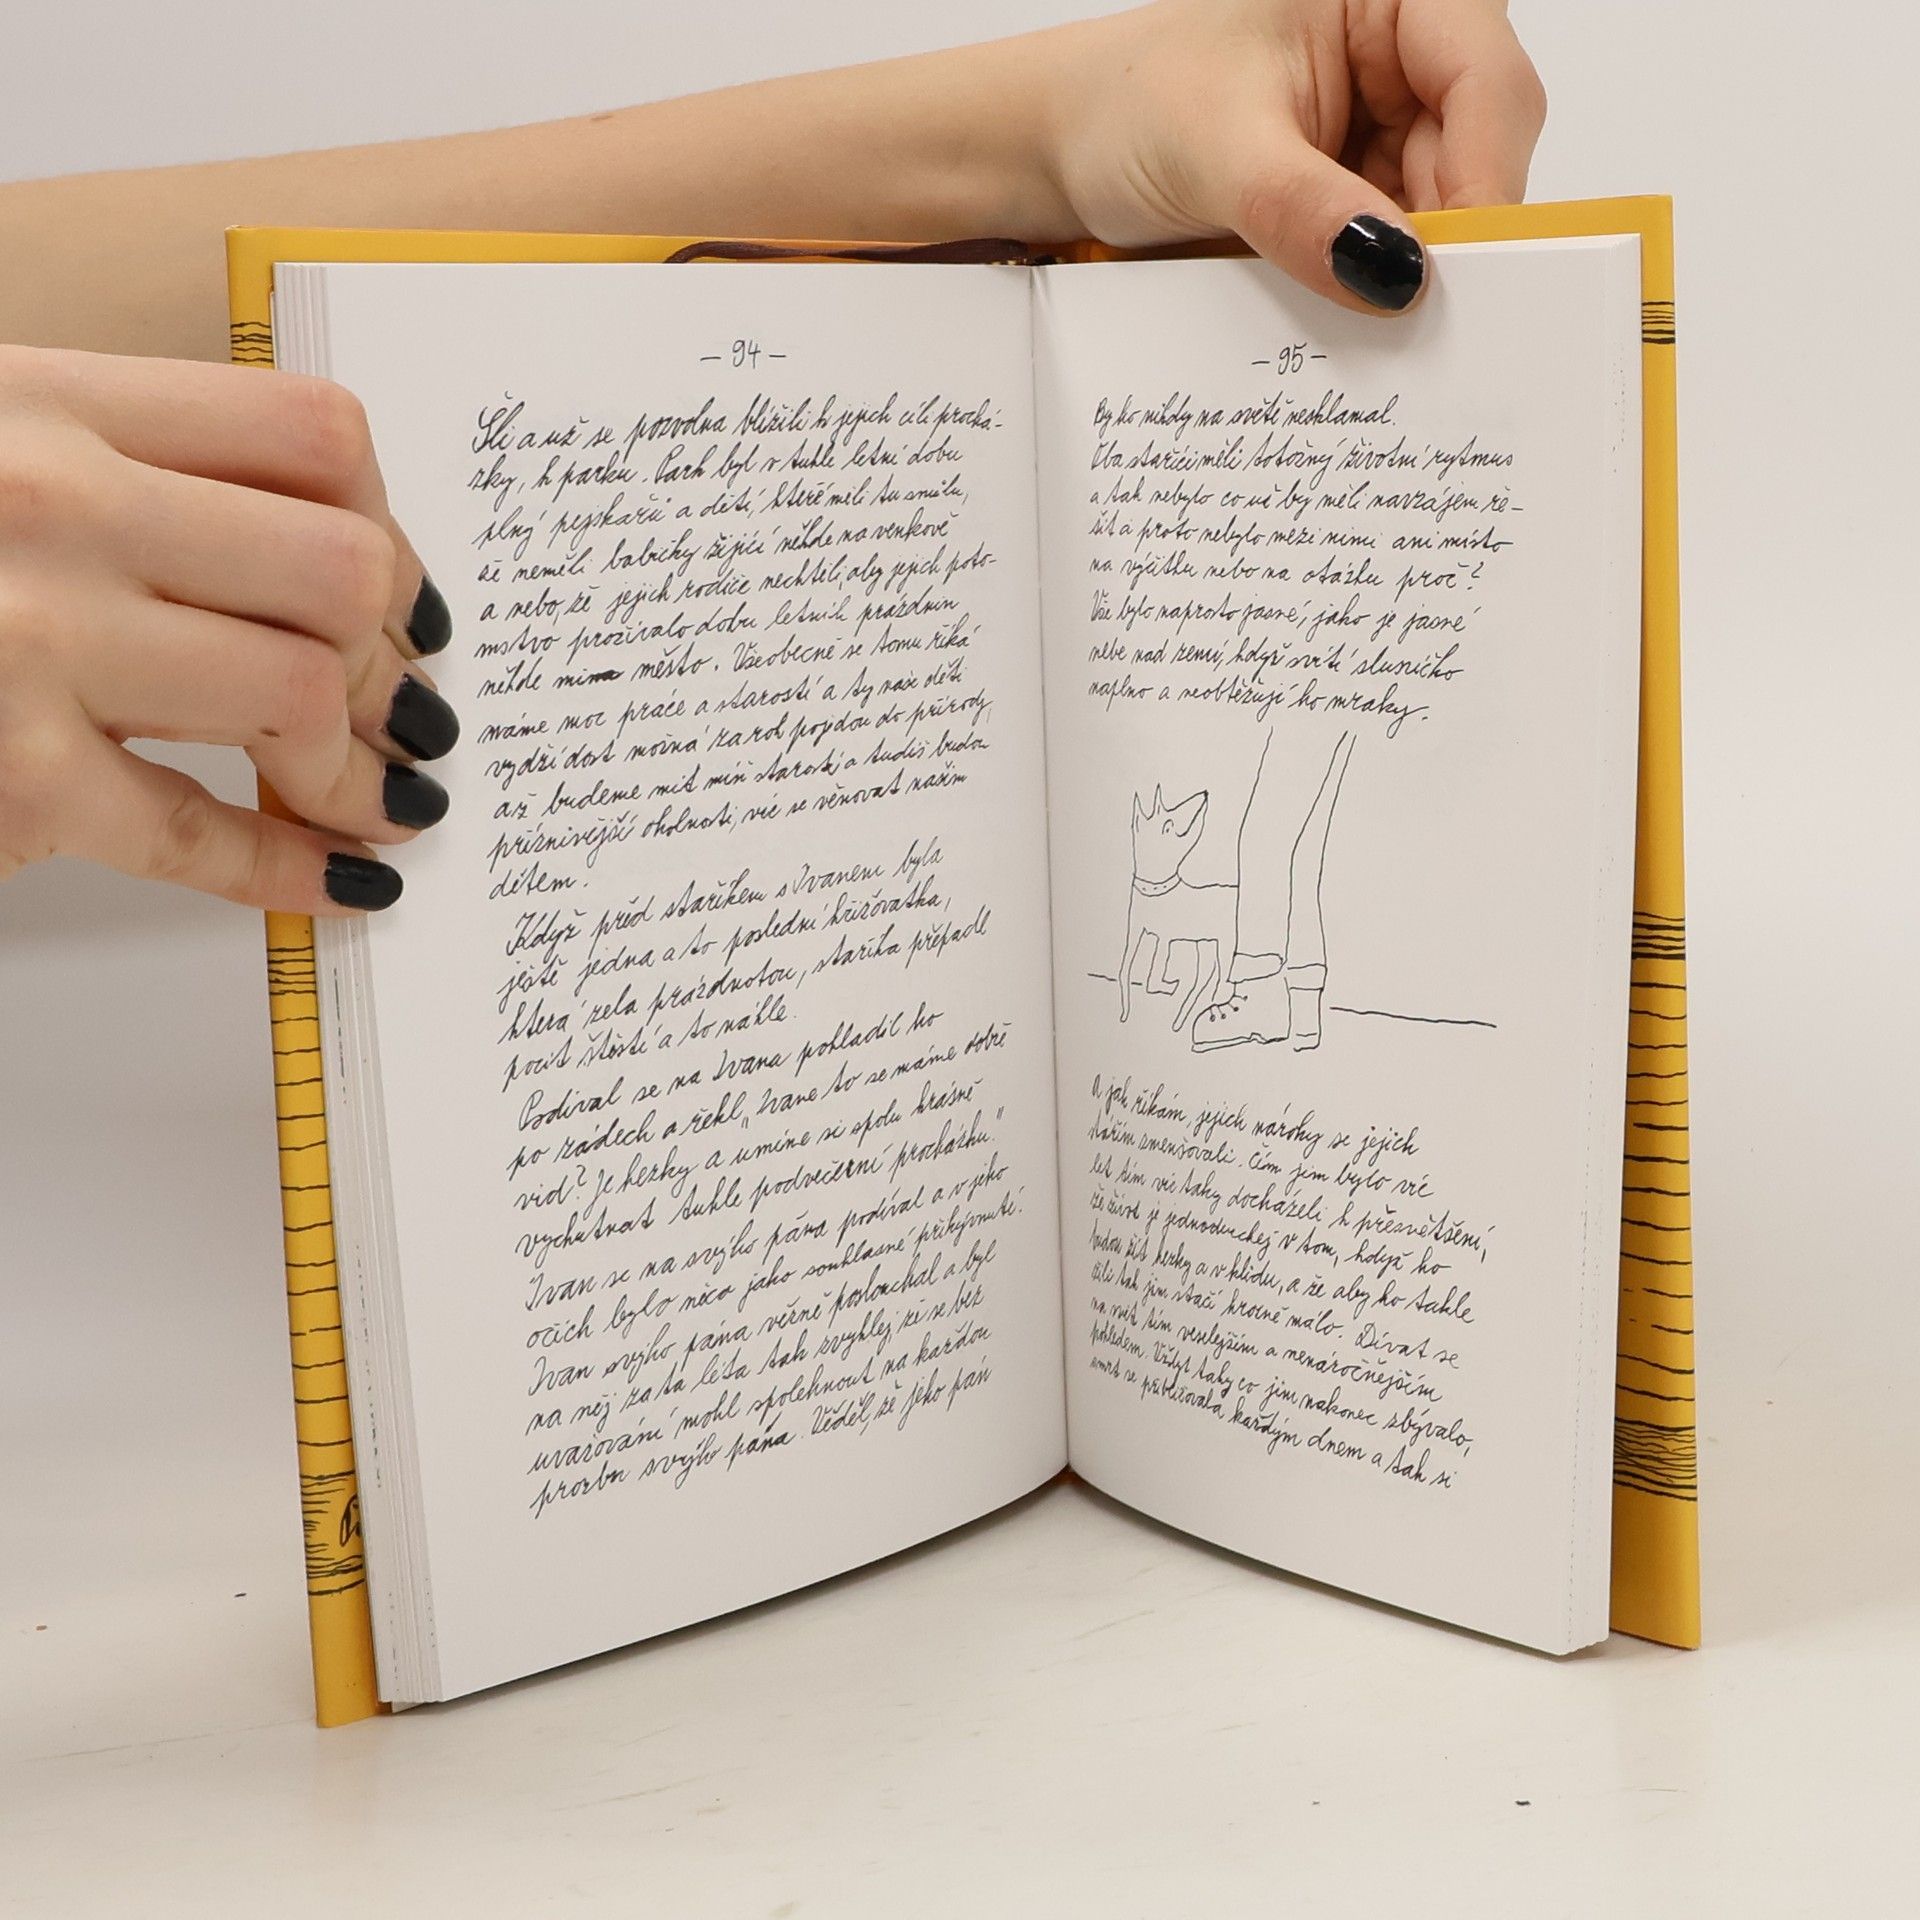 — 94 —
Šli a už se pozvolna blížili k jejich cíli prochá-
zky, k parku. Park byl v tuhle letní dobu
plný pejskařů a dětí, které měli tu smůlu,
že neměli babičky žijící někde na venkově
a nebo, že jejich rodiče nechtěli, aby jejich poto-
mstvo prožívalo dobu letních prázdnin
někde mimo město. Všeobecně se tomu říká
máme moc práce a starostí a ty naše děti
vydrží dost možná za rok pojedou do přírody,
až budeme mít míň starostí a tudíš budou
príznivější okolnosti, víc se věnovat našim
dětem.
Když před staříkem s Ivanem byla
ještě jedna a to poslední křižovatka,
která zela prázdnotou, staříka přepadl
pocit štěstí a to náhle.
Podíval se na Ivana pohladil ho
po zádech a řekl „Ivane to se máme dobře
viď? Je hezky a umíme si spolu krásně
vychutnat tuhle podvečerní procházku."
Ivan se na svýho pána podíval a v jeho
očích bylo něco jako souhlasné přikývnutí.
Ivan svýho pána věrně poslouchal a byl
na něj za ta léta tak zvyklej, že se bez
uvažování mohl spolehnout na každou
prozbu svýho pána. Věděl, že jeho pán
— 95 —
by ho nikdy na světě nesklamal.
Oba staříci měli totožný životní rytmus
a tak nebylo co už by měli navzájem ře-
šit a proto nebylo mezi nimi ani místo
na výčitku nebo na otázku proč?
Vše bylo naprosto jasné, jako je jasné
nebe nad zemí, když svítí sluníčko
naplno a neobtěžují ho mraky.
A jak říkám, jejich nároky se jejich
stářím zmenšovali. Čím jim bylo víc
let tím víc taky docházeli k přesvětšení,
že život je jednoduchej v tom, když ho
budou žít hezky a v klidu, a že aby ho takle
žili tak jim stačí hrozně málo. Dívat se
na svět tím veselejším a nenáročnějším
pohledem. Vždyť taky co jim nakonec zbývalo,
smrt se přibližovala každým dnem a tak si